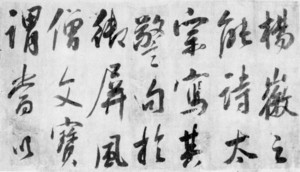 楊徽之
能詩太
宗寫其
警句於
御屏風
僧文寶
謂當以